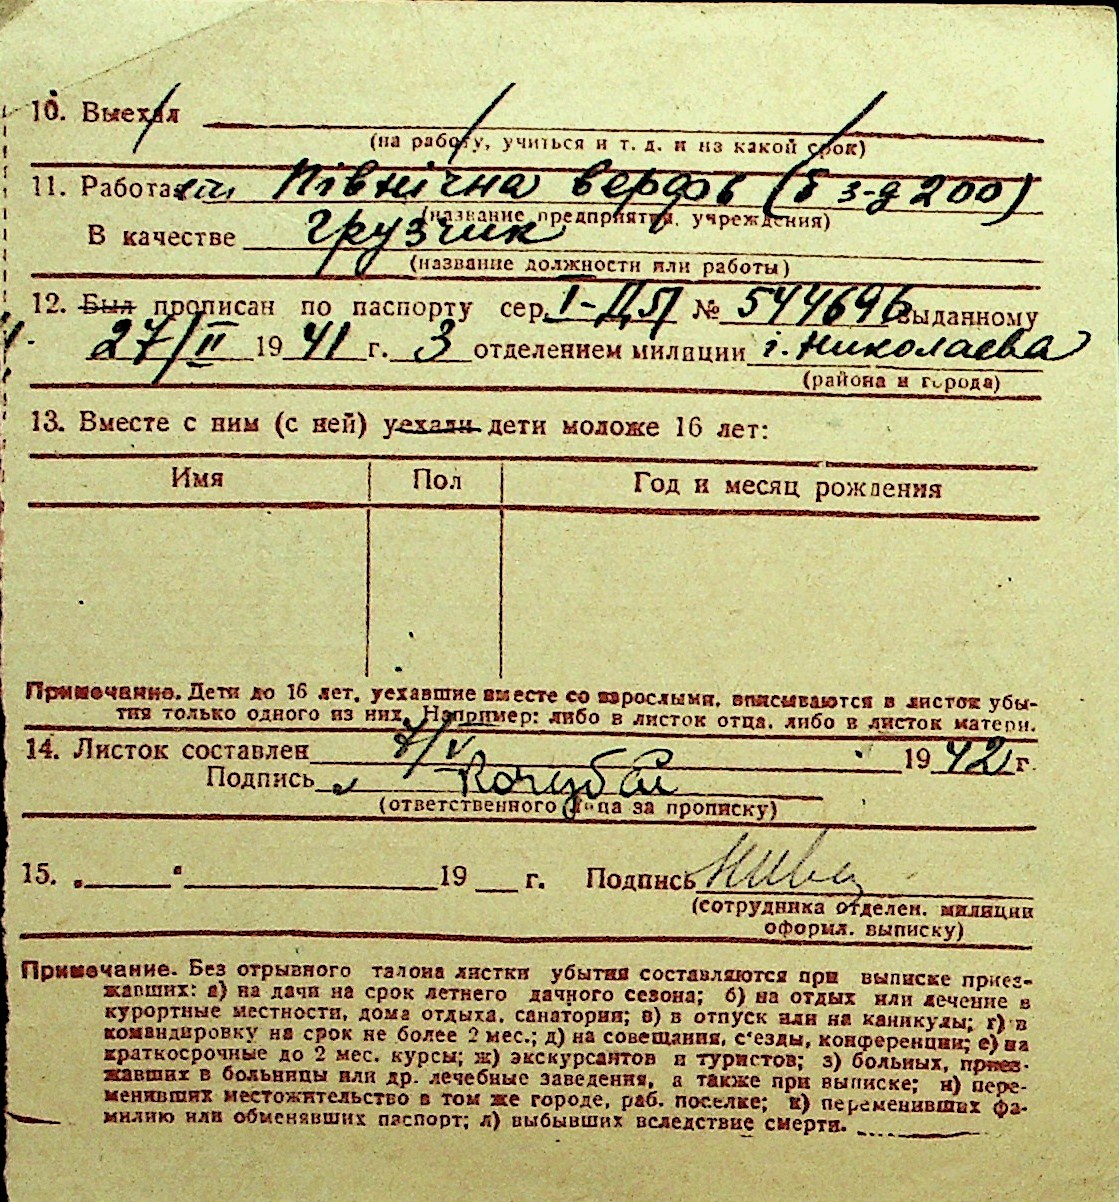 10. Выехал
(на работу, учиться и т. д. и на какой срок)
11. Работает Північна верфь (б з-д 200)
(название предприятия, учреждения)
В качестве грузчик
(название должности или работы)
12. Был прописан по паспорту сер. I-ДП № 544696 выданному
27/II 1941 г. 3 отделением милиции г. Николаева
(района и города)
13. Вместе с ним (с ней) уехали дети моложе 16 лет:
Имя Пол Год и месяц рождения
Примечание. Дети до 16 лет, уехавшие вместе со взрослыми, вписываются в листок убы-
тия только одного из них. Например: либо в листок отца, либо в листок матери.
14. Листок составлен 7/V 1942 г.
Подпись Кочубей
(ответственного лица за прописку)
15. „ “ 19 г. Подпись
(сотрудника отделен. милиции
оформл. выписку)
Примечание. Без отрывного талона листки убытия составляются при выписке приез-
жавших: а) на дачи на срок летнего дачного сезона; б) на отдых или лечение в
курортные местности, дома отдыха, санатории; в) в отпуск или на каникулы; г) в
командировку на срок не более 2 мес.; д) на совещания, с'езды, конференции; е) на
краткосрочные до 2 мес. курсы; ж) экскурсантов и туристов; з) больных, приез-
жавших в больницы или др. лечебные заведения, а также при выписке; и) пере-
менивших местожительство в том же городе, раб. поселке; к) переменивших фа-
милию или обменявших паспорт; л) выбывших вследствие смерти.